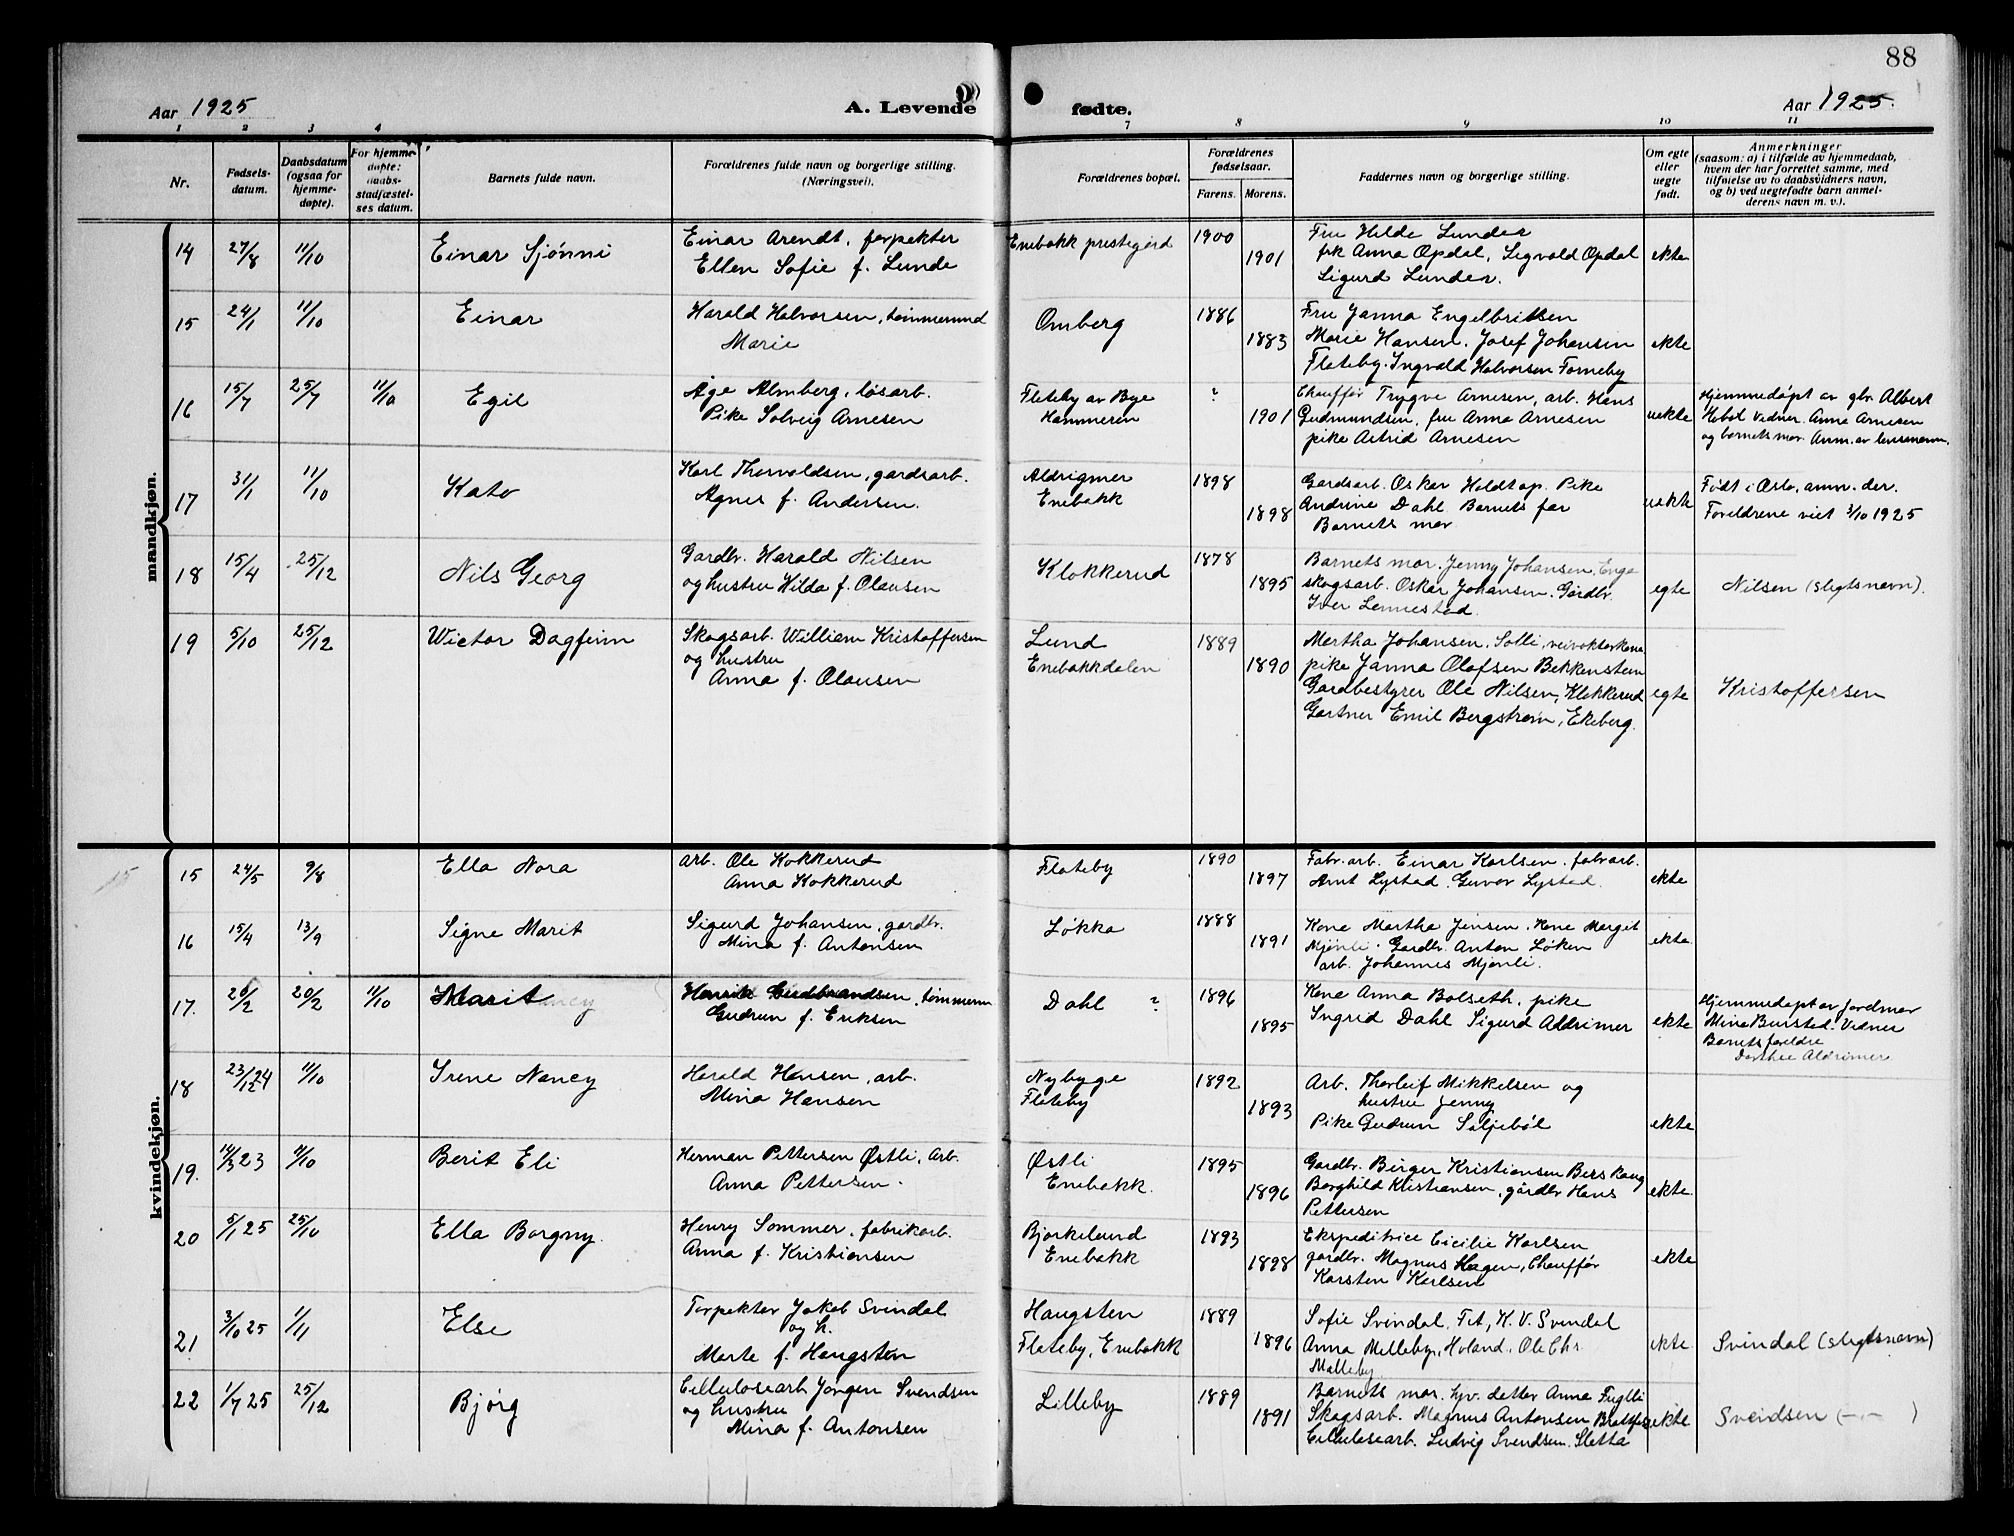 88
Aar 1925
A. Levende
fødte.
Aar 1925.
1 2 3 4 7 8 9 10 11
Nr.
Fødsels-
datum.
Daabsdatum
(ogsaa for
hjemme-
døpte).
For hjemme-
døpte:
daabs-
stadfæstel-
ses datum.
Barnets fulde navn.
Forældrenes fulde navn og borgerlige stilling.
(Næringsvei).
Forældrenes bopæl.
Forældrenes
fødselsaar.
Farens. Morens.
Faddernes navn og borgerlige stilling.
Om egte
eller
uegte
født.
Anmerkninger
(saasom: a) i tilfælde av hjemmedaab,
hvem der har forrettet samme, med
tilføielse av to daabsvidners navn,
og b) ved uegtefødte barn anmel-
derens navn m. v.).
mandkjøn.
14 27/8 11/10 Einar Sjønni
Einar Arendt, forpakter
Ellen Sofie f. Lunde
Enebakk prestegård
1900
1901
Fru Hilde Lunder
frk Anna Opdal, Sigvald Opdal
Sigurd Lunder.
ekte
15 24/1 11/10 Einar
Harald Halvorsen, tømmermnd
Marie
Omberg
1886
1883
Fru Janna Engelbritsen
Marie Hansen, Josef Johansen
Flateby. Ingvald Halvorsen Forneby
ekte
16 15/7 25/7 11/10 Egil
Åge Almberg, løsarb.
Pike Solveig Arnesen
Flateby av Bye
Hammeren
?
1901
Chauffør Trygve Arnesen, arb. Hans
Gudmundsen, fru Anna Arnesen
pike Astrid Arnesen
uekte
Hjemmedøpt av gbr. Albert
Hebøl Vidner. Anna Arnesen
og barnets mor. Anm. av lensmann.
17 31/1 11/10 Kato
Karl Thorvaldsen, gardsarb.
Agnes f. Andersen.
Aldrigmer
Enebakk
1898
1898
Gardsarb. Oskar Holdtop. Pike
Andrine Dahl Barnets far
Barnets mor
uekte
Født i Oslo, anm. der.
Foreldrene viet 3/10 1925
18 15/4 25/12 Nils Georg
Gardbr. Harald Nilsen
og hustru Hilda f. Olausen
Klokkerud
1878
1895
Barnets mor. Jenny Johansen, Enga
skogsarb. Oskar Johansen. Gårdbr.
Iver Lennestad.
egte
Nilsen (slegtsnavn).
19 5/10 25/12 Wictor Dagfinn
Skogsarb. William Kristoffersen
og hustru
Anna f. Olausen
Lund
Enebakkdalen
1889
1890
Martha Johansen, Solli, veivokterkone
pike Janna Olafsen Bekkensten
Gardbestyrer Ole Nilsen, Klokkerud
Gartner Emil Bergstrøm, Ekeberg.
egte
Kristoffersen
kvindekjøn.
15 24/5 9/8 Ella Nora
arb. Ole Kokkerud
Anna Kokkerud
Flateby
1890
1897
Fabr.arb. Einar Karlsen. fabrarb.
Arnt Lystad. Guvor Lystad.
ekte
16 15/4 13/9 Signe Marit
Sigurd Johansen, gardbr.
Mina f. Antonsen
Løkka
1888
1891
Kone Martha Jensen. Kone Margit
Mjønli. Gardbr. Anton Løken
arb. Johannes Mjønli.
ekte
17. 26/2 20/2 11/10 Marit
Henrik Gudbrandsen, tømmerm
Gudrun f. Eriksen
Dahl ?
1896
1895
Kone Anna Bolseth, pike
Ingrid Dahl Sigurd Aldrimer
ekte
Hjemmedøpt av Jordmor
Mina Burstad. Vidner
Barnets foreldre
Dorthee Aldrimer
18 23/12 24 11/10 Irene Nancy
Harald Hansen, arb.
Mina Hansen
Nybyge
Flateby
1892
1893
Arb. Thorleif Mikkelsen og
hustru Jenny
Pike Gudrun Seljebøl
ekte
19. 14/3 23 11/10 Berit Eli
Herman Pettersen Østli, Arb.
Anna Pettersen.
Østli
Enebakk.
1895
1896
Gardbr. Birger Kristiansen Berskaug
Borghild Kristiansen, gårdbr Hans
Pettersen
ekte
20 5/1 25 25/10 Ella Borgny.
Henry Sommer, fabrikarb.
Anna f. Kristiansen
Bjørkelund
Enebakk
1893
1898
Ekspeditrice Cicilie Karlsen
gardbr. Magnus Hagen, Chauffør
Karsten Karlsen
ekte
21 3/10 25 1/11 Else
Forpakter Jakob Svindal
og h.
Marte f. Haugsten
Haugsten
Flateby, Enebakk
1889
1896
Sofie Svindal, Fet, K. V. Svendal
Anna Melleby, Høland, Ole Chr.
Melleby
ekte
Svindal (slegtsnavn)
22 1/7 25 25/12 Bjørg
Cellulosearb Jørgen Svendsen
og hustru
Mina f. Antonsen
Lilleby
1889
1891
Barnets mor. hv. datter Anna Fuglli
Skogsarb. Magnus Antonsen
Cellulosearb. Ludvig Svendsen. Sletta
ekte
Svendsen (-"- )